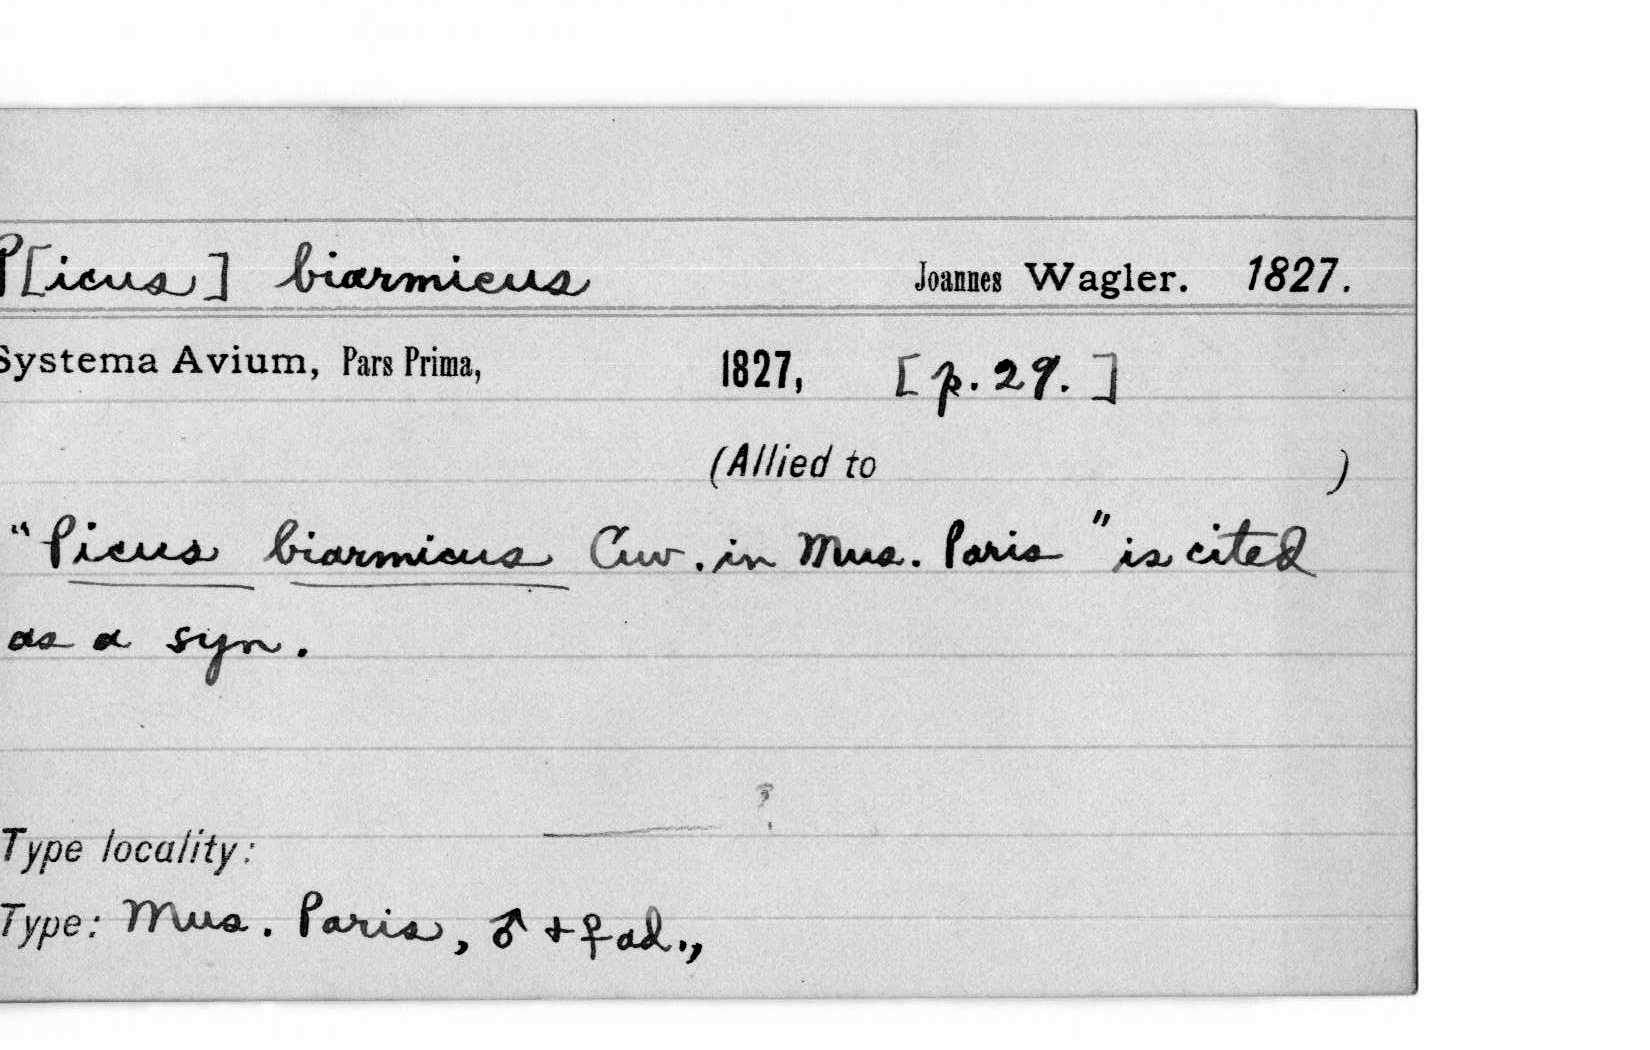 P[icus] biarmicus Joannes Wagler. 1827.
Systema Avium, Pars Prima, 1827, [p. 29.]
(Allied to )
"Picus biarmicus Cuv. in Mus. Paris" is cited
as a syn.
?
Type locality:
Type: Mus. Paris, ♂ + ♀ ad.,